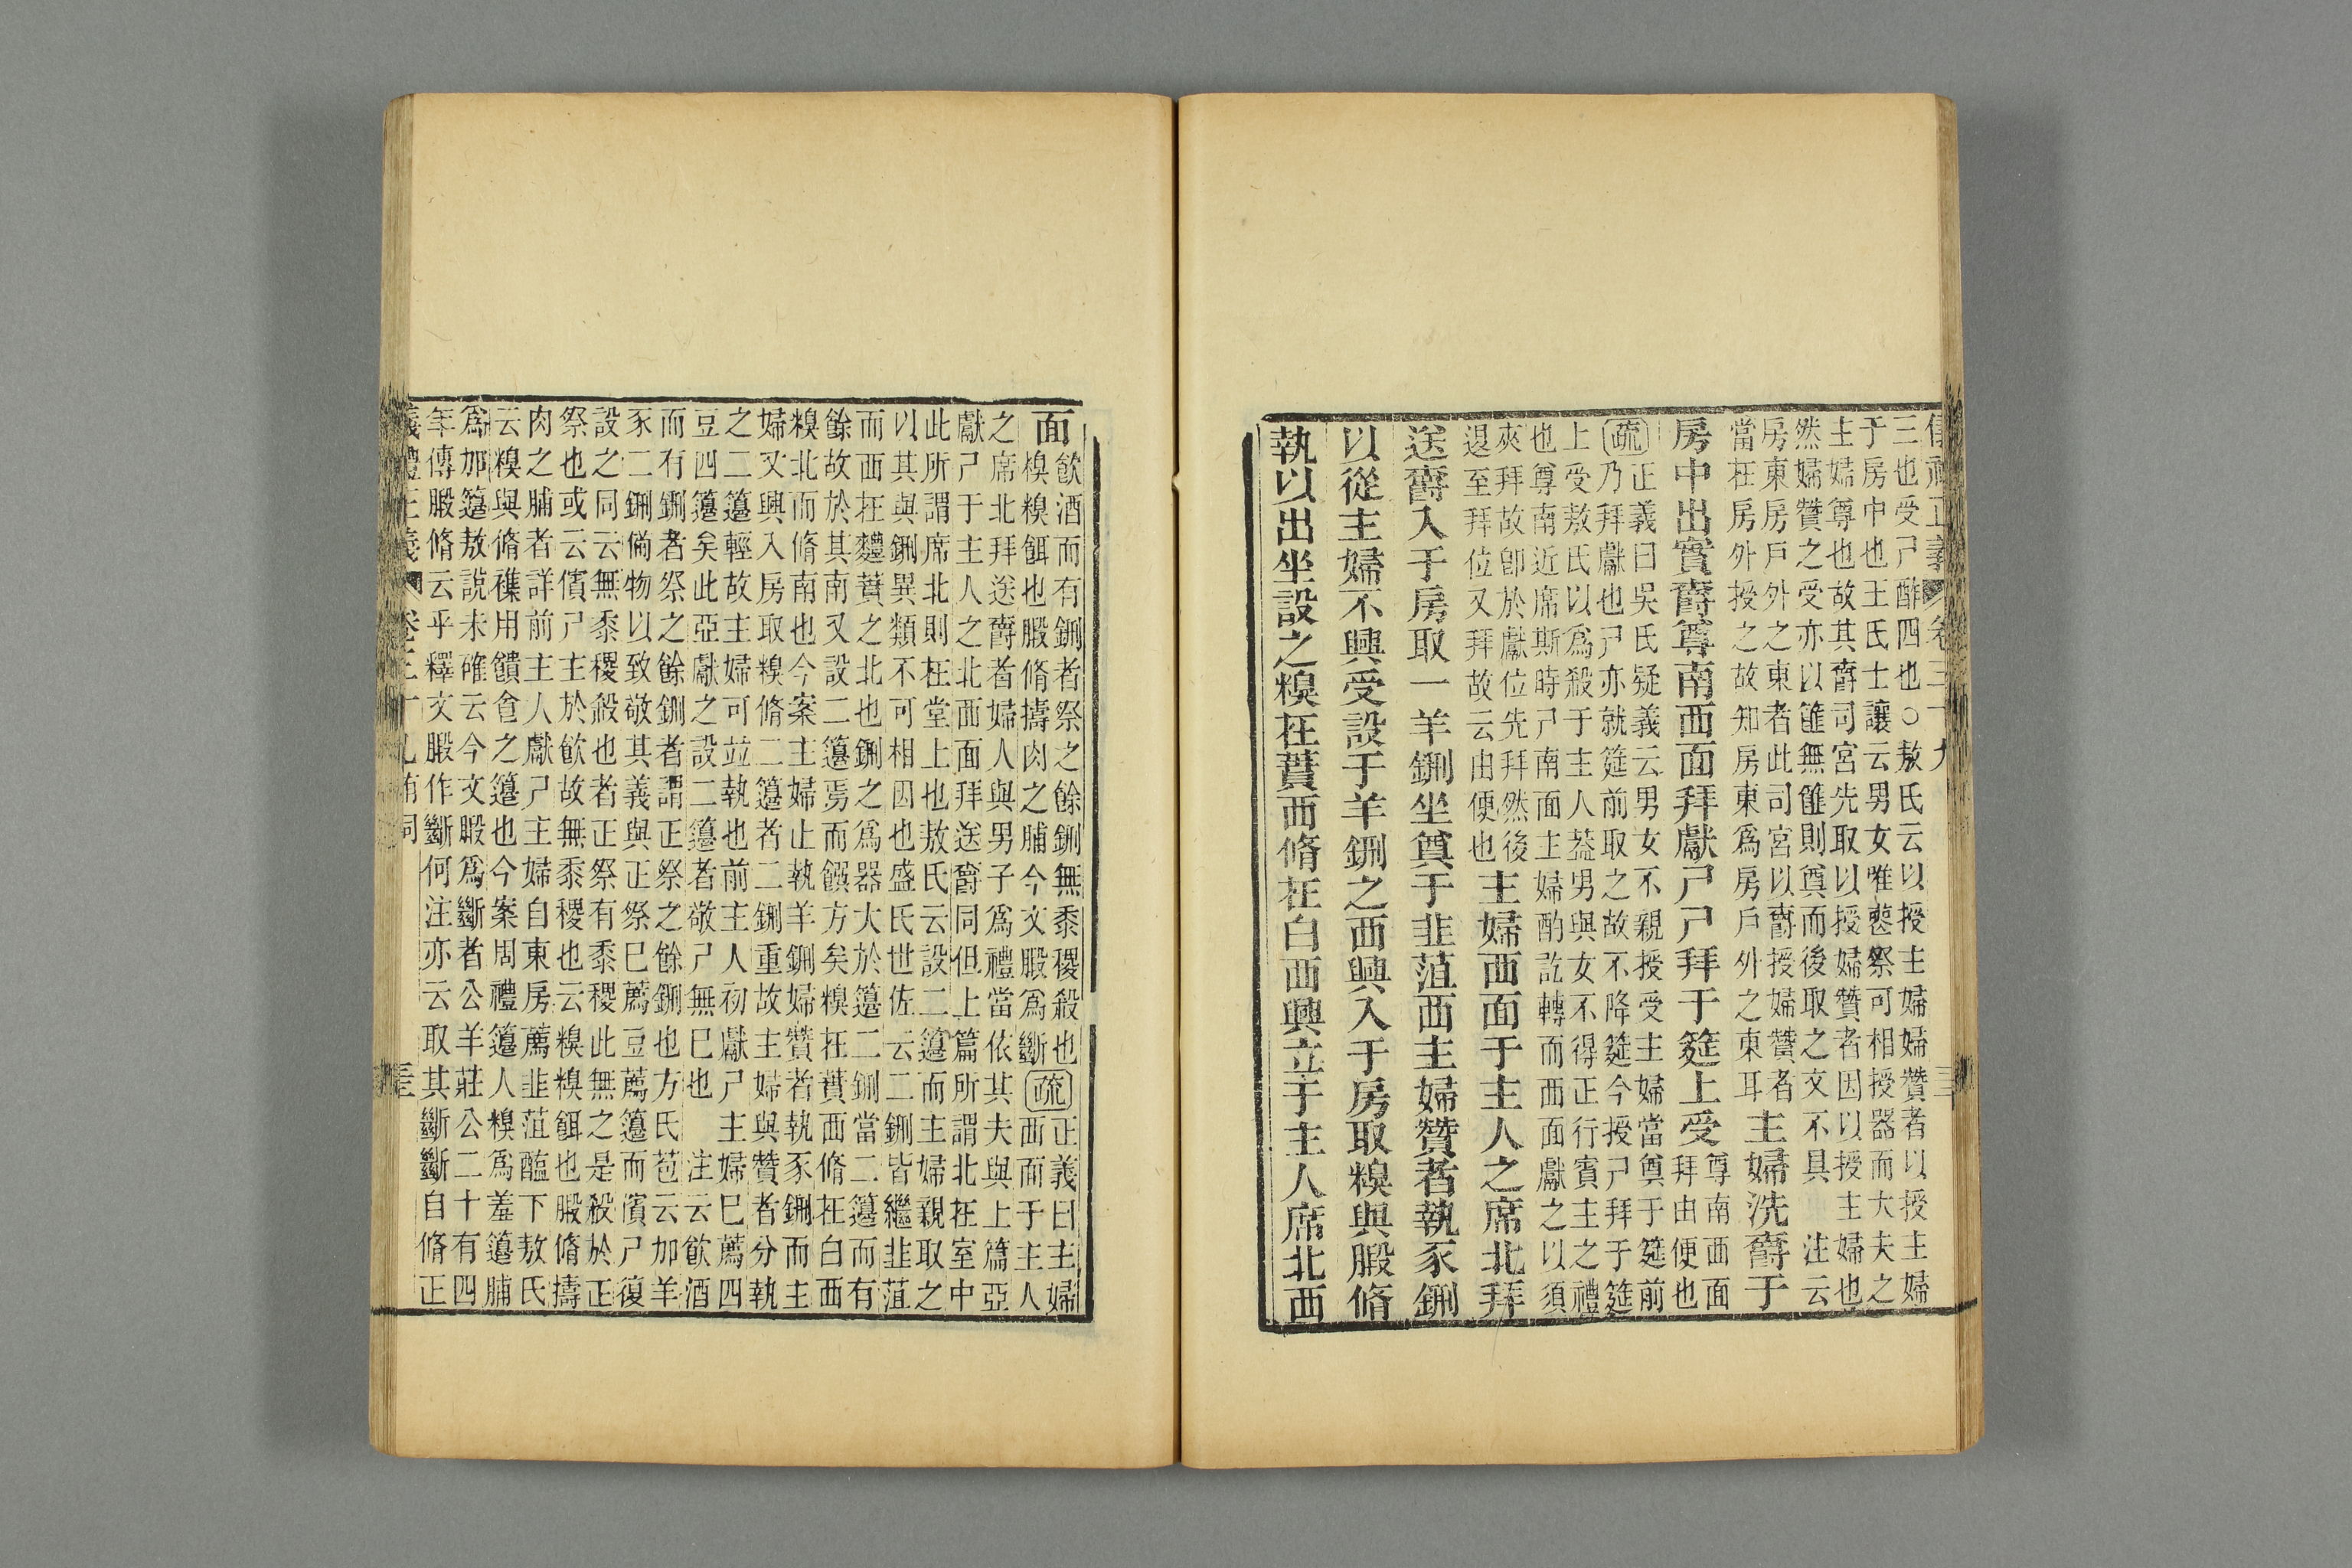 儀禮正義 卷三十九 三
三也受尸酢四也○敖氏云以授主婦婦贊者以授主婦
于房中也王氏士讓云男女唯喪祭可相授器而大夫之
主婦尊也故其爵司宮先取以授婦贊者因以授主婦也
然婦贊之受亦以篚無篚則奠而後取之文不具 注云
房東房戶外之東者此司宮以爵授婦贊者
當在房外授之故知房東爲房戶外之東耳
主婦洗爵于
房中出實爵尊南西面拜獻尸尸拜于筵上受
尊南西面
拜由便也
疏
正義曰吳氏疑義云男女不親授受主婦當奠于筵前
乃拜獻也尸亦就筵前取之故不降筵今授尸拜于筵
上受敖氏以爲殺于主人蓋男與女不得正行賓主之禮
也尊南近席斯時尸南面主婦酌訖轉而西面獻之以須
夾拜故卽於獻位先拜然後
退至拜位又拜故云由便也
主婦西面于主人之席北拜
送爵入于房取一羊鉶坐奠于韭菹西主婦贊者執豕鉶
以從主婦不興受設于羊鉶之西興入于房取糗與腶脩
執以出坐設之糗在蕡西脩在白西興立于主人席北西
面
飮酒而有鉶者祭之餘鉶無黍稷殺也
糗糗餌也腶脩擣肉之脯今文腶爲斷
疏
正義曰主婦
西面于主人
之席北拜送爵者婦人與男子爲禮當依其夫與上篇亞
獻尸于主人之北西面拜送爵同但上篇所謂北在室中
此所謂席北則在堂上也敖氏云設二籩而主婦親取之
以其與鉶異類不可相因也盛氏世佐云二鉶皆繼韭菹
而西在麷蕡之北也鉶之爲器大於籩二鉶當二籩而有
餘故於其南又設二籩焉而饌方矣糗在蕡西脩在白西
糗北而脩南也今案主婦止執羊鉶婦贊者執豕鉶而主
婦又興入房取糗脩二籩者二鉶重故主婦與贊者分執
之二籩輕故主婦可竝執也前主人初獻尸主婦巳薦四
豆四籩矣此亞獻之設二籩者敬尸無巳也 注云飮酒
而有鉶者祭之餘鉶者謂正祭之餘鉶也方氏苞云加羊
豕二鉶備物以致敬其義與正祭巳薦豆薦籩而儐尸復
設之同云無黍稷殺也者正祭有黍稷此無之是殺於正
祭也或云儐尸主於飮故無黍稷也云糗糗餌也腶脩擣
肉之脯者詳前主人獻尸主婦自東房薦韭菹醢下敖氏
云糗與脩襍用饋食之籩也今案周禮籩人糗爲羞籩脯
爲加籩敖說未確云今文腶爲斷者公羊莊公二十有四
年傳腶脩云乎釋文腶作斷何注亦云取其斷斷自脩正
儀禮正義 卷三十九 有司